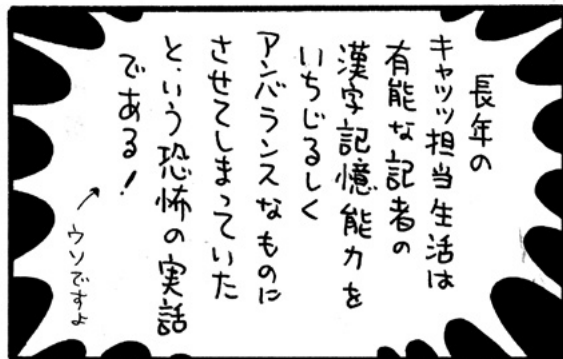 長年の
キャッツ担当生活は
有能な記者の
漢字記憶能力を
いちじるしく
アンバランスなものに
させてしまっていた
という恐怖の実話
である!
ウソですよ